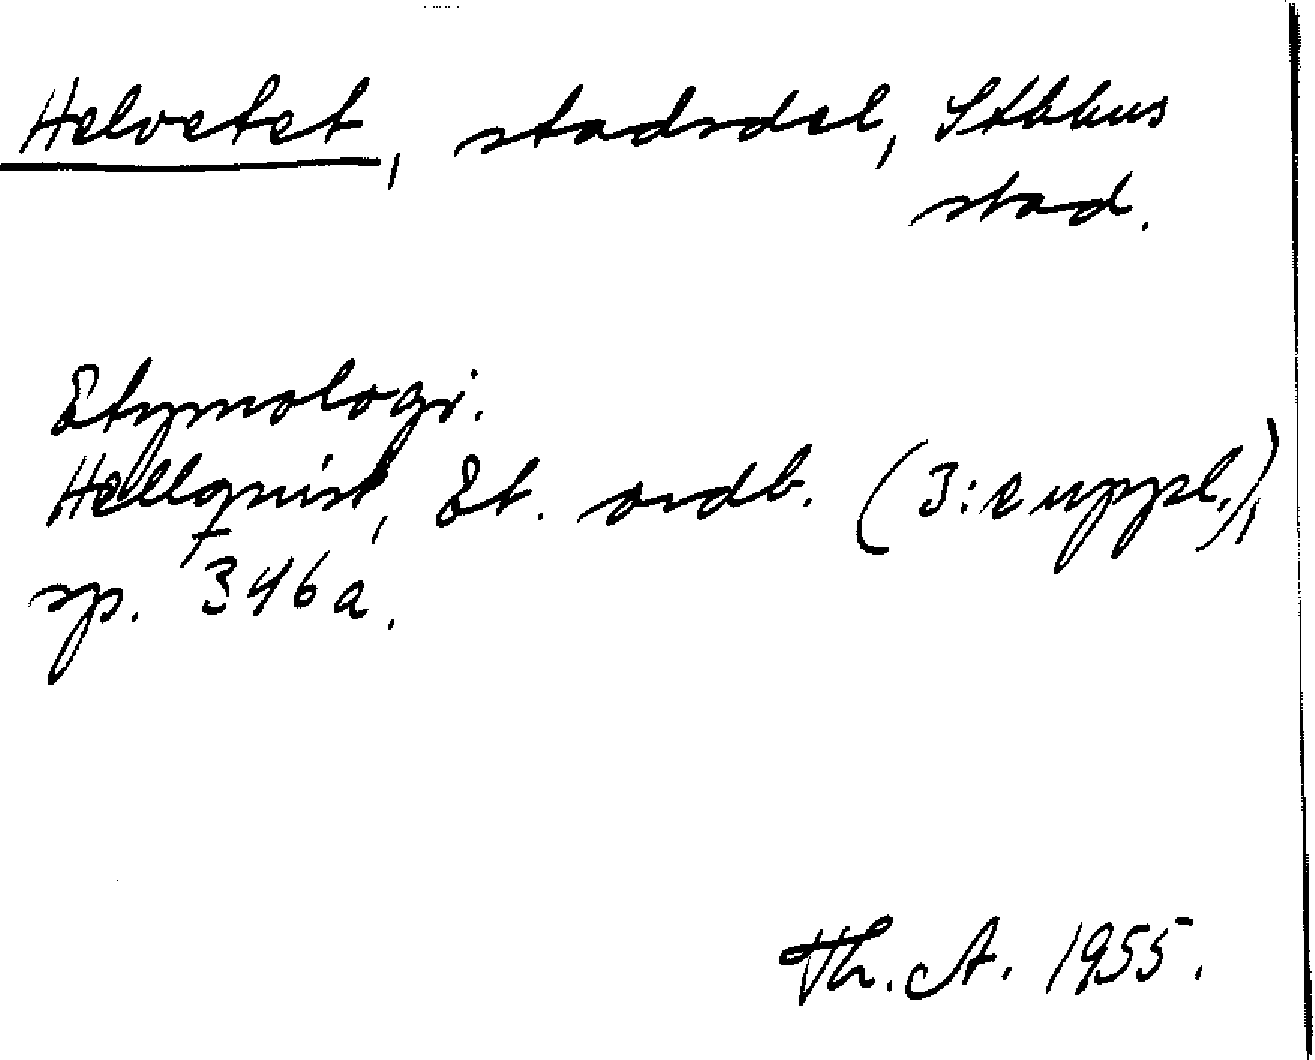 Helvetet, stadsdel, Sthlms
stad.
Etymologi.
Hellquist, Et. ordb. (3:e uppl.),
sp. 346a.
Th. A. 1955.